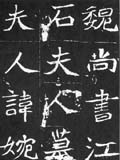 魏尚書江
石夫人墓
夫人諱婉